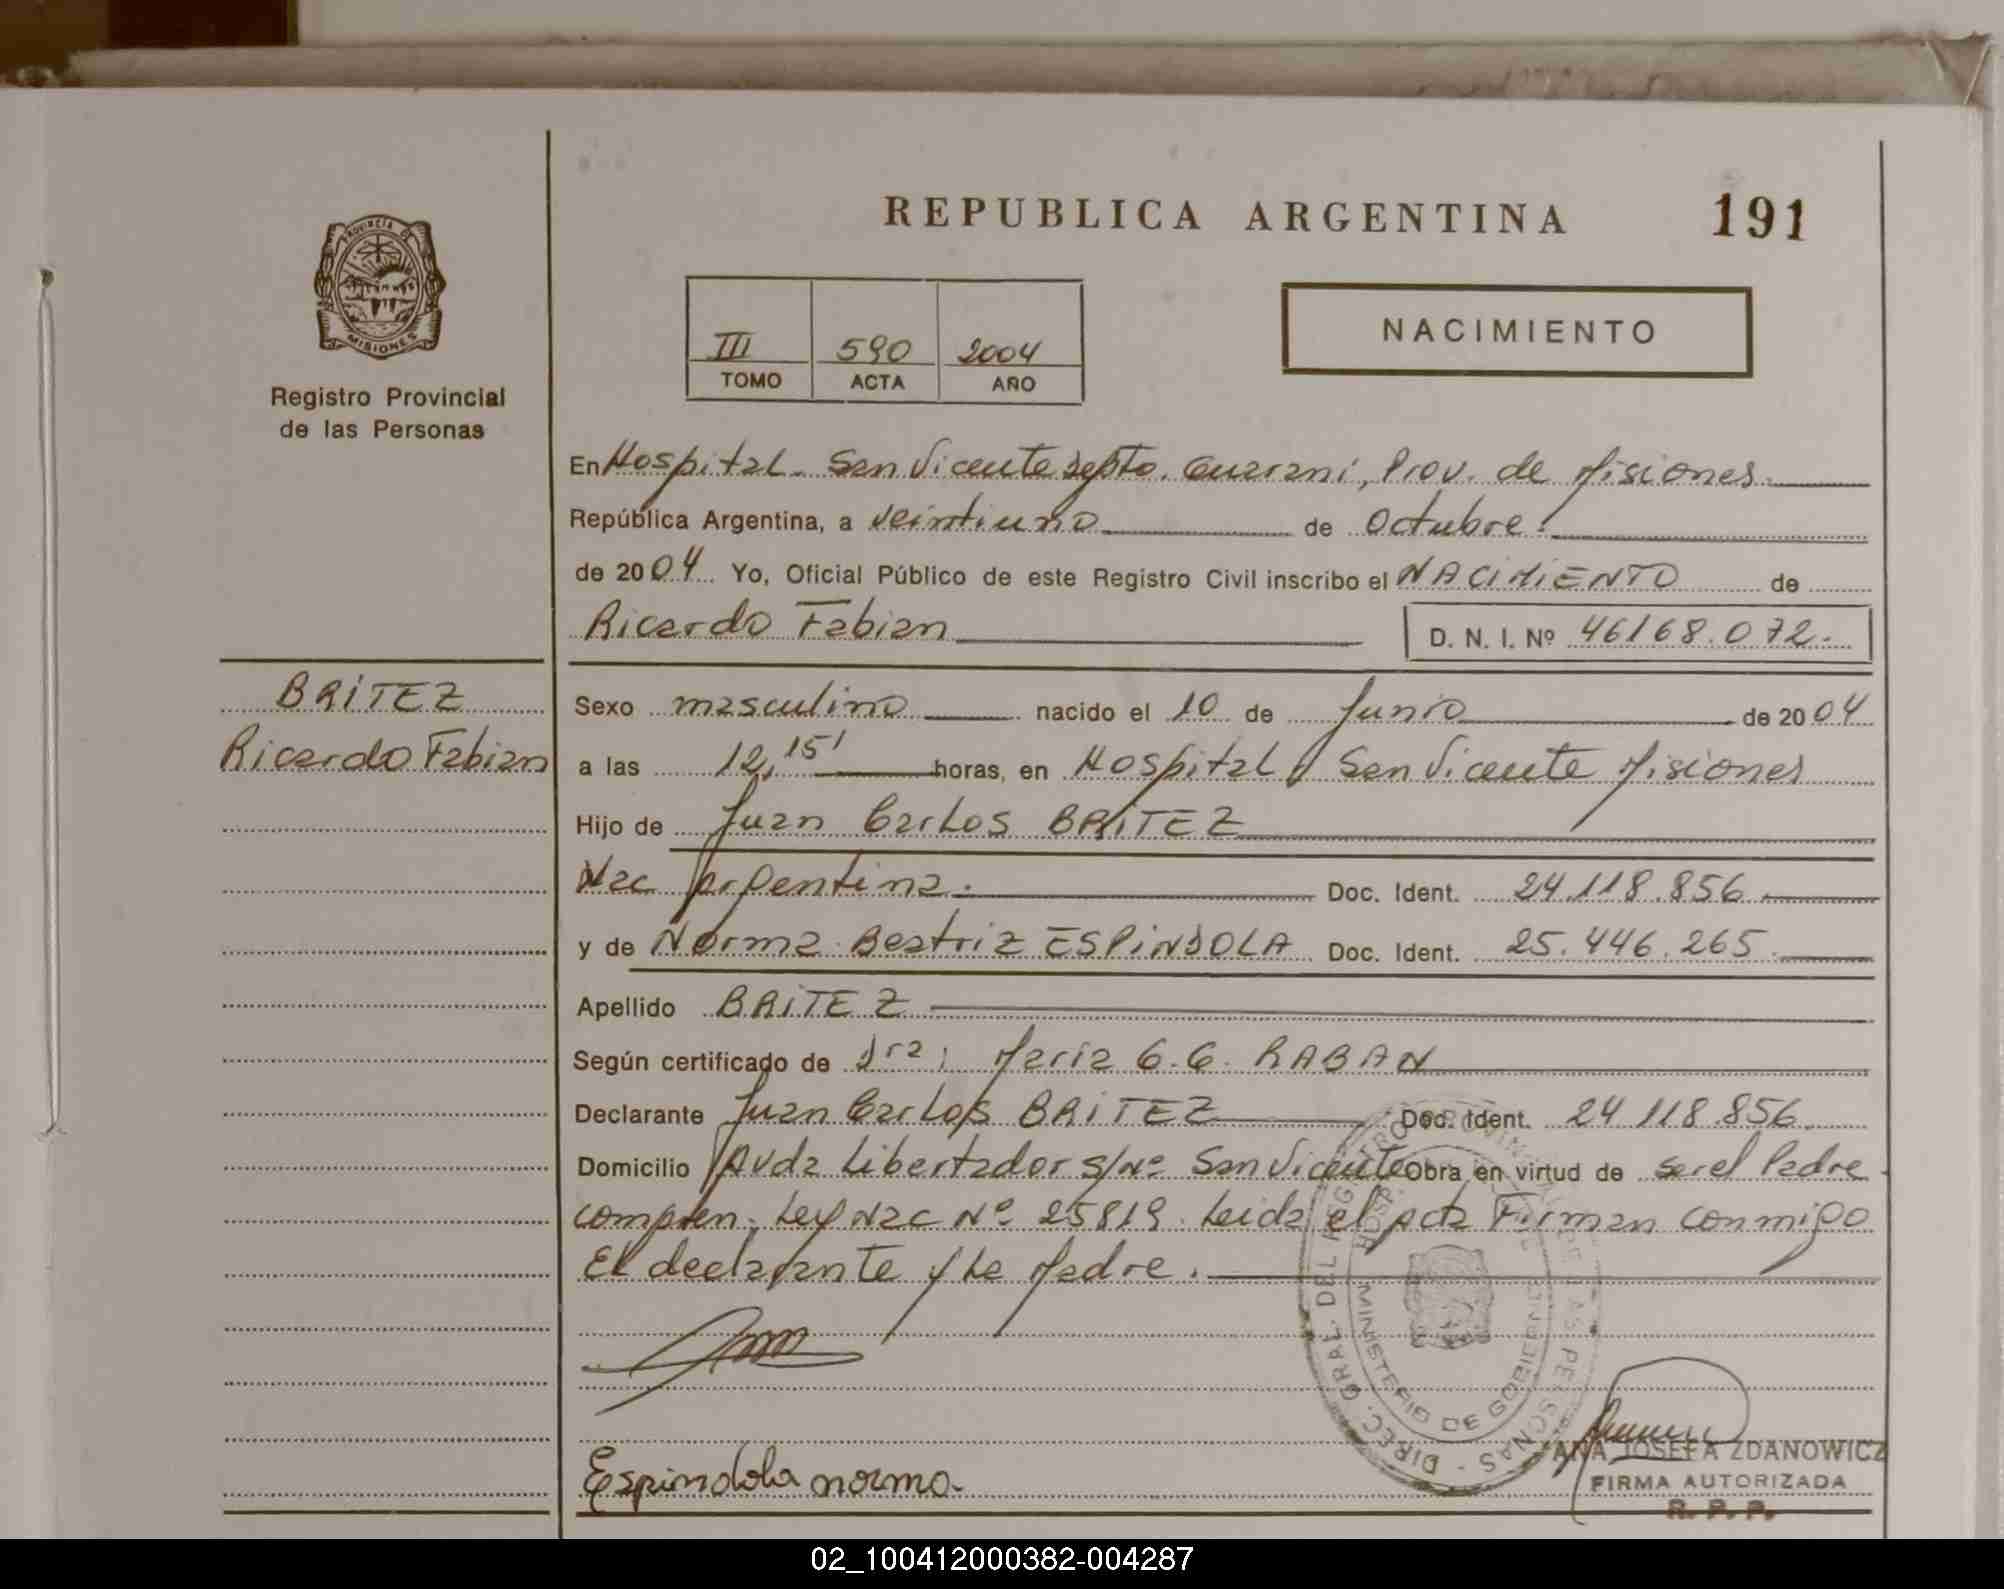 REPUBLICA ARGENTINA 191
PROVINCIA DE
MISIONES
Registro Provincial
de las Personas
III 590 2004
TOMO ACTA AÑO
NACIMIENTO
En Hospital - San Vicente Depto. Guarani, Prov. de Misiones.
República Argentina, a veintiuno de Octubre.
de 2004 Yo, Oficial Público de este Registro Civil inscribo el NACIMIENTO de
Ricardo Fabian D. N. I. Nº 46168.072.-
BRITEZ
Ricardo Fabian
Sexo masculino nacido el 10 de Junio de 2004
a las 12,15' horas, en Hospital San Vicente Misiones
Hijo de Juan Carlos BRITEZ
Nac Argentina. Doc. Ident. 24.118.856.
y de Norma Beatriz ESPINDOLA Doc. Ident. 25.446.265.
Apellido BRITEZ
Según certificado de Dra; Maria G.G. RABAN
Declarante Juan Carlos BRITEZ Doc. Ident. 24 118.856.
Domicilio Avda Libertador s/nº San Vicente Obra en virtud de ser el Padre
compren. Ley Nac Nº 25819. Leida el Acta Firman conmigo
El declarante y La Madre.
DIREC. GRAL. DEL REGISTRO PROVINCIAL DE LAS PERSONAS -
HOSP.
MINISTERIO DE GOBIERNO
Espindola norma.
ANA JOSEFA ZDANOWICZ
FIRMA AUTORIZADA
R. P. P.
02_100412000382-004287